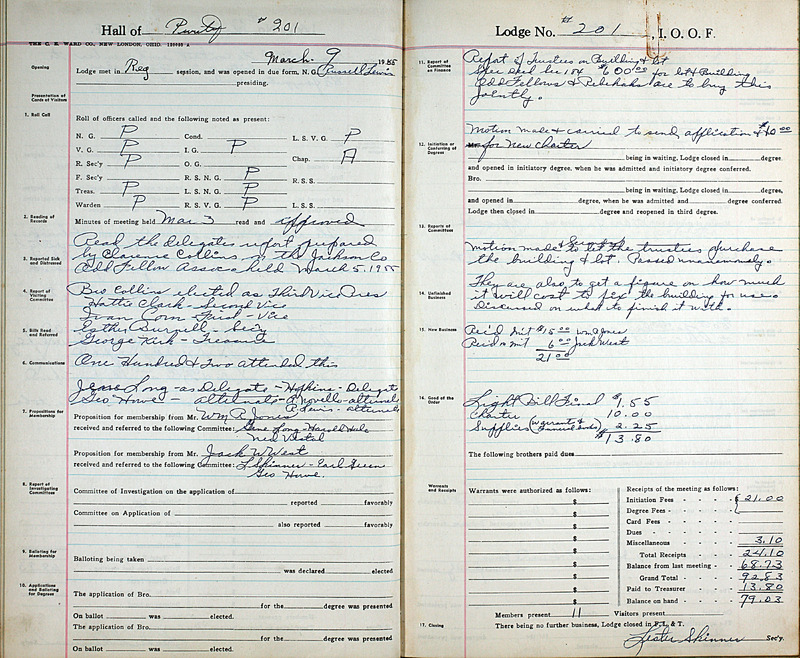 Hall of Purity # 201
THE C. E. WARD CO., NEW LONDON, OHIO.
March 9 1955
Opening
Lodge met in Reg session, and was opened in due form, N. G. Russell Lewis
presiding.
Presentation of Cards of Visitors
1. Roll Call
Roll of officers called and the following noted as present:
N. G. P Cond. L. S. V. G. P
V. G. P I. G. P Chap. A
R. Sec'y P O. G.
F. Sec'y R. S. N. G. P R. S. S.
Treas. P L. S. N. G. P
Warden P R. S. V. G. P L. S. S.
2. Reading of Records
Minutes of meeting held Mar 3 read and approved
3. Reported Sick and Distressed
Read the delegates report prepared
by Clarence Collins of the Jackson Co
Odd Fellow Assoc held March 5, 1955
4. Report of Visiting Committee
Beo Collins elected as Third Vice Pres
Hattie Clark - Second Vice
Ivan Corn - First - Vice
5. Bills Read and Referred
Esther Burrell - Sec'y
George Kirk - Treasure
6. Communications
One Hundred & Two attended this
Jesse Long - as Delegate - Hopkins - Delegate
Geo Howe - alternate - A Novello - alternate
A Lewis - alternate
7. Propositions for Membership
Proposition for membership from Mr. Wm R. Jones
received and referred to the following Committee: Gene Long - Harold Hulse
Ned Vestal
Proposition for membership from Mr. Jack W West
received and referred to the following Committee: L Skinner - Earl
Geo Howe.
8. Report of Investigating Committee
Committee of Investigation on the application of
reported favorably
Committee on Application of
also reported favorably
9. Balloting for Membership
Balloting being taken
was declared elected
10. Applications and Balloting for Degrees
The application of Bro.
for the degree was presented
On ballot was elected.
The application of Bro.
for the degree was presented
On ballot was elected.
Lodge No. # 201, I. O. O. F.
11. Report of Committee on Finance
Report of Trustees on Building & lot
$600.00 for lot & Building
Odd Fellows & Rebekahs are to buy this
jointly.
Motion made & carried to send application & $10.00
for New Charter
12. Initiation or Conferring of Degrees
being in waiting, Lodge closed in degree.
and opened in initiatory degree, when he was admitted and initiatory degree conferred.
Bro. being in waiting, Lodge closed in degree,
and opened in degree, when he was admitted and degree conferred.
Lodge then closed in degree and reopened in third degree.
13. Reports of Committees
Motion made & to let the trusties purchase
the building & lot. Passed unanimously.
14. Unfinished Business
They are also to get a figure on how much
it will cost to fix the building for use.
Discussed on what to finish it with.
15. New Business
Rec'd Init $15.00 Wm Jones
Rec'd on Init 6.00 Jack West
21.00
16. Good of the Order
Light Bill Final $1.55
Charter 10.00
Supplies (Warrant & 2.25
$13.80
The following brothers paid dues
Warrants and Receipts
Warrants were authorized as follows:
$
$
$
$
$
$
$
$
$
Receipts of the meeting as follows:
Initiation Fees $21.00
Degree Fees
Card Fees
Dues
Miscellaneous 3.10
Total Receipts 24.10
Balance from last meeting 68.73
Grand Total 92.83
Paid to Treasurer 13.80
Balance on hand 79.03
Members present 11 Visitors present
17. Closing
There being no further business, Lodge closed in F., L. & T.
Lester Skinner Sec'y.